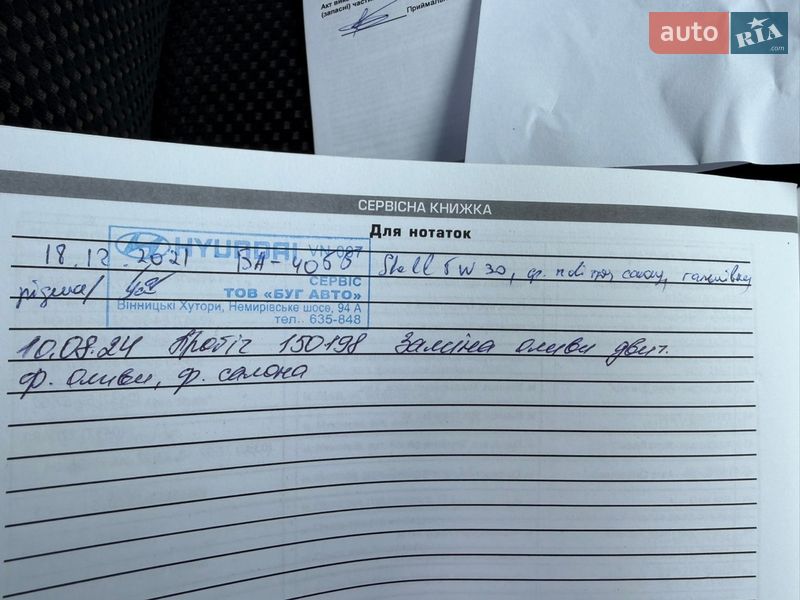 Акт вик
(запасні) части
Приймаль
auto RIA
.com
СЕРВІСНА КНИЖКА
Для нотаток
HYUNDAI VN-007
18.12.2021 ВА-4058 Shell 5W30, ф. повітря, салону, гальмівну
рідина/
СЕРВІС
ТОВ «БУГ АВТО»
Вінницькі Хутори, Немирівське шосе, 94 А
тел.. 635-848
10.08.24 Пробіг 150198 Заміна оливи двиг.
ф. оливи, ф. салона